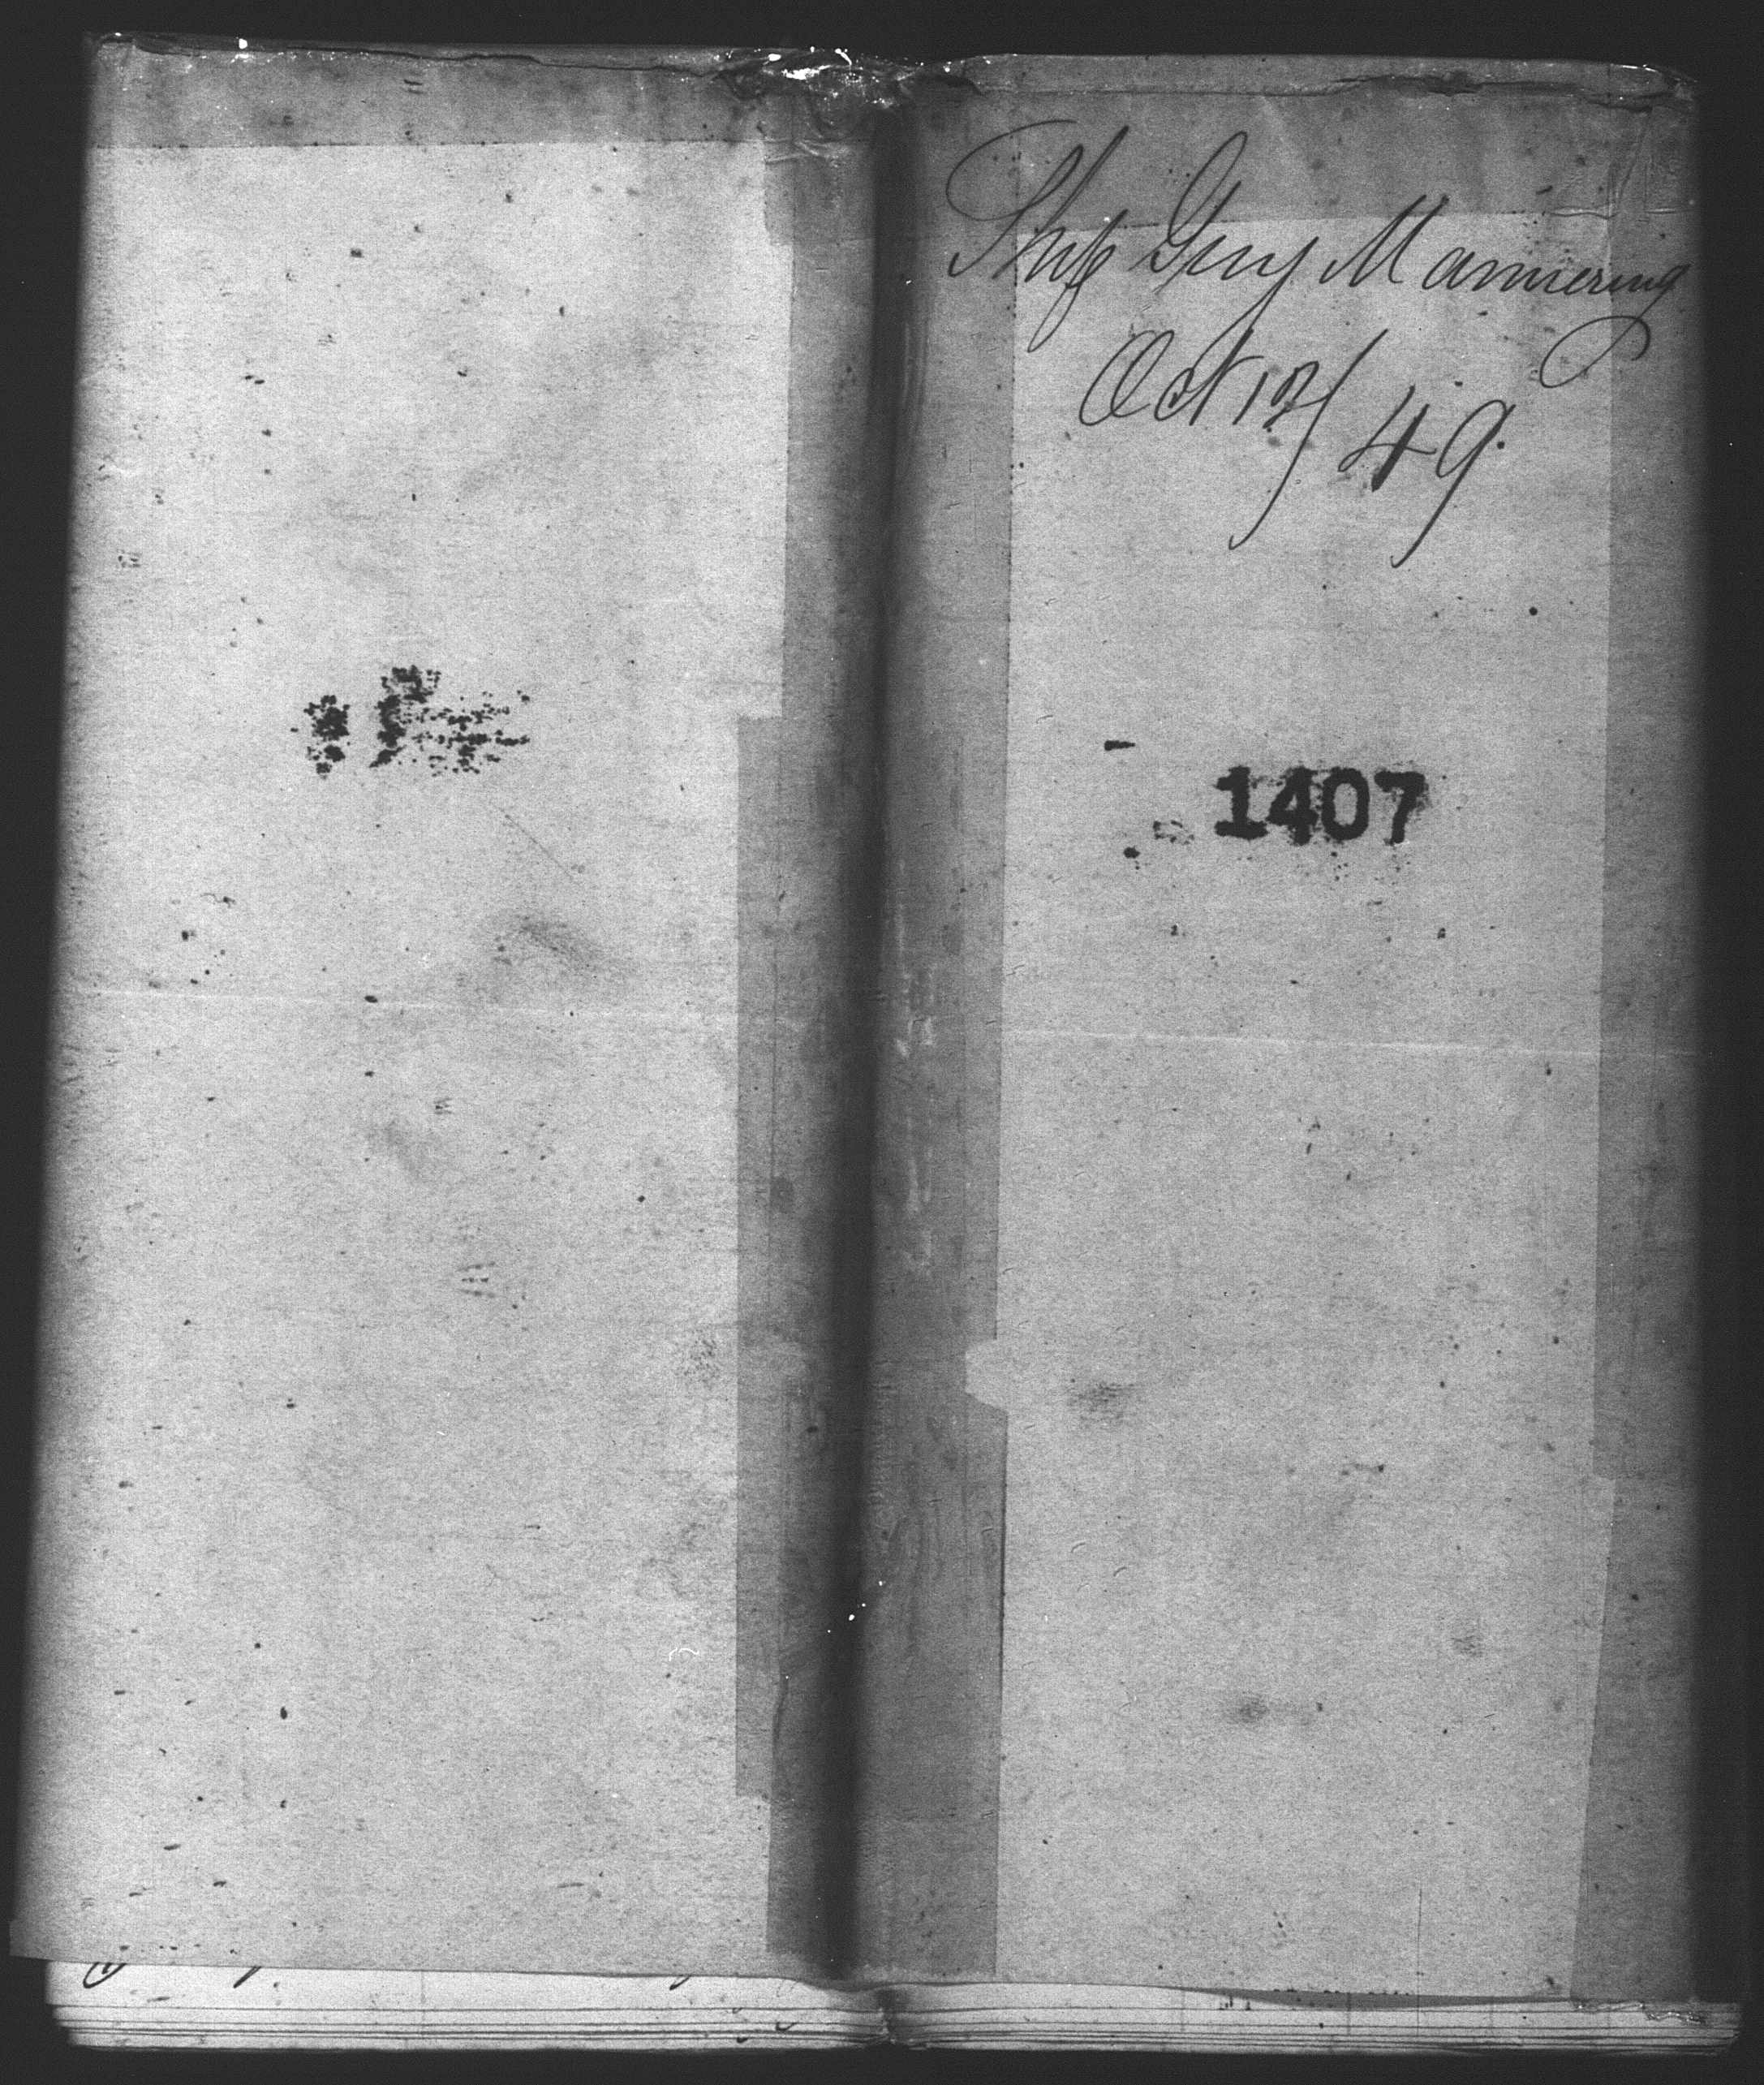 Ship Guy Mannering
Oct 12/49
1407